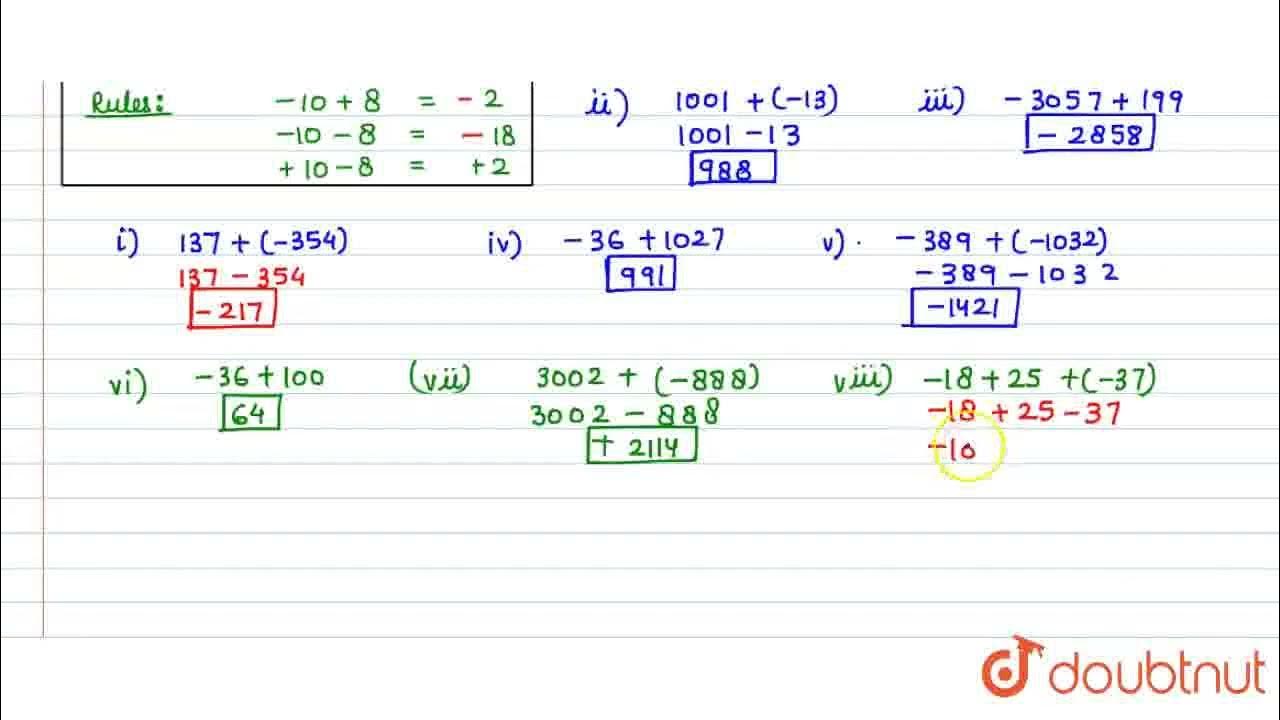 Rules: -10 + 8 = - 2
-10 - 8 = - 18
+ 10 - 8 = + 2
ii) 1001 + (-13)
1001 - 13
988
iii) - 3057 + 199
- 2858
i) 137 + (-354)
137 - 354
- 217
iv) - 36 + 1027
991
v). - 389 + (-1032)
- 389 - 1032
-1421
vi) -36 + 100
64
(vii) 3002 + (-888)
3002 - 888
+ 2114
viii) -18 + 25 + (-37)
-18 + 25 - 37
-10
doubtnut